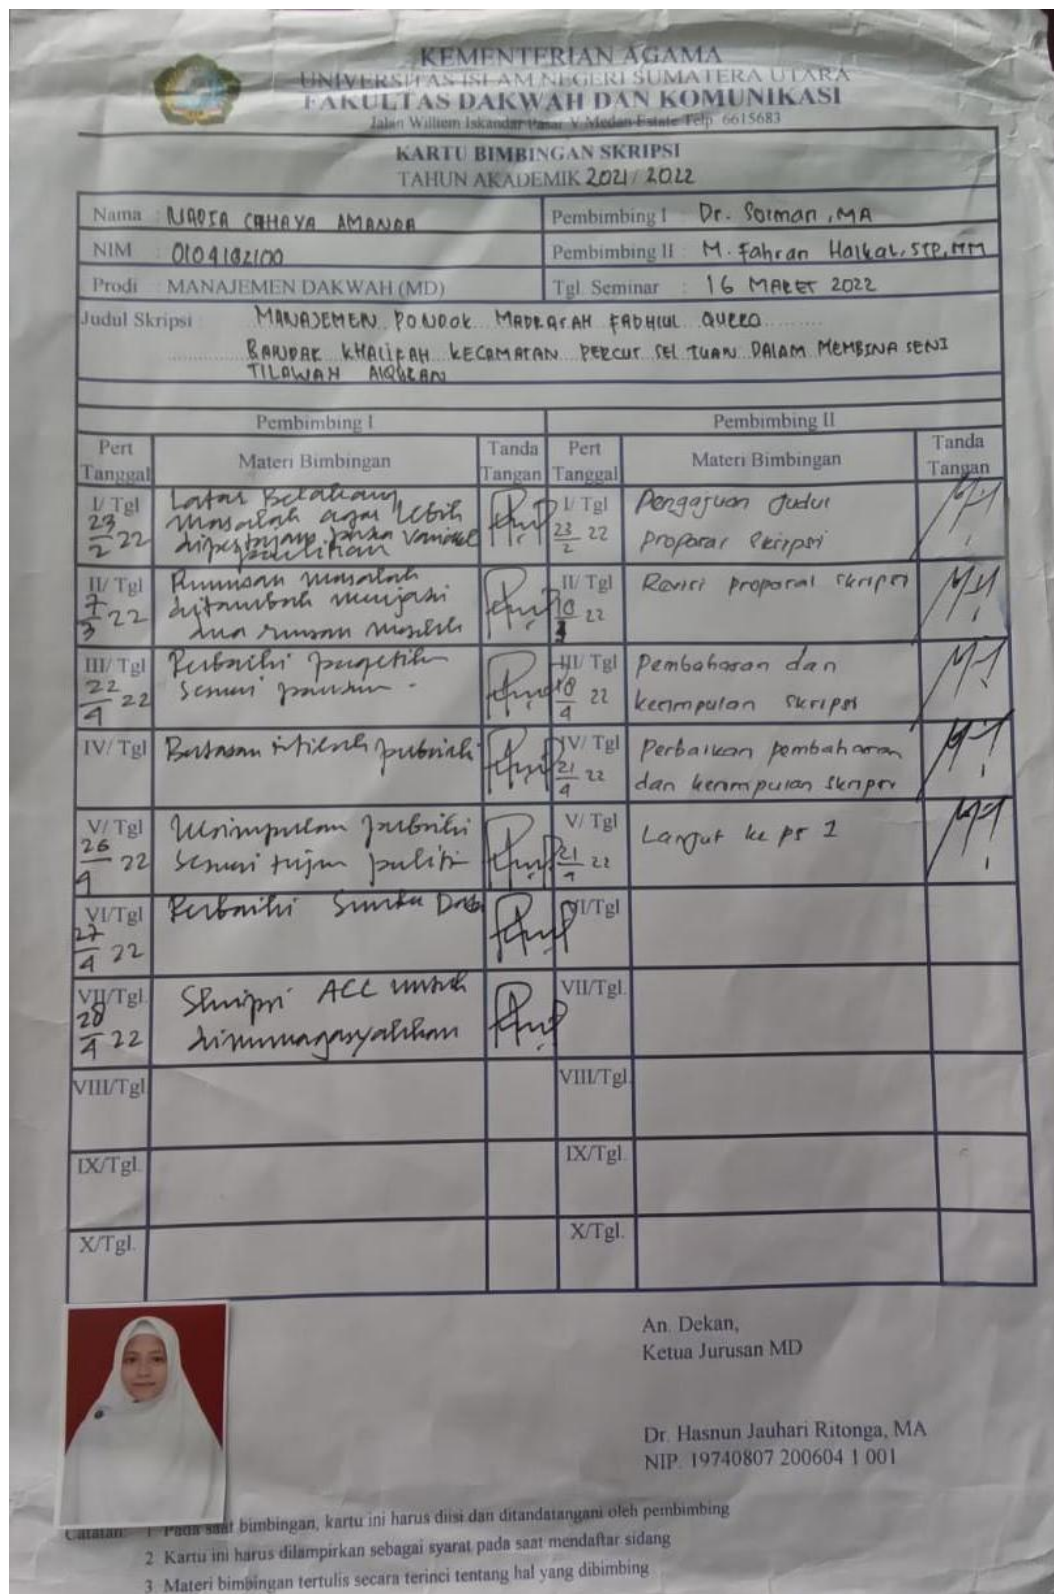 KEMENTERIAN AGAMA
UNIVERSITAS ISLAM NEGERI SUMATERA UTARA
FAKULTAS DAKWAH DAN KOMUNIKASI
Jalan Williem Iskandar Pasar V Medan Estate Telp. 6615683
KARTU BIMBINGAN SKRIPSI
TAHUN AKADEMIK 2021/2022
Nama : NADIA CAHAYA AMANDA
Pembimbing I : Dr. Soiman, MA
NIM : 0104182100
Pembimbing II : M. Fahran Haikal, STP, MM
Prodi : MANAJEMEN DAKWAH (MD)
Tgl. Seminar : 16 MARET 2022
Judul Skripsi : MANAJEMEN PONDOK MADRASAH FADHLUL QURRO
BANDAR KHALIFAH KECAMATAN PERCUT SEI TUAN DALAM MEMBINA SENI
TILAWAH ALQURAN
Pembimbing I Pembimbing II
Pert Tanggal Materi Bimbingan Tanda Tangan Pert Tanggal Materi Bimbingan Tanda Tangan
I/ Tgl 23/2 22 Latar Belakang
masalah agar lebih
dipertajam pada variabel
penelitian
I/ Tgl 23/2 22 Pengajuan Judul
Proposal Skripsi
II/ Tgl 7/3 22 Rumusan masalah
ditambah menjadi
dua rumusan masalah
II/ Tgl 10/3 22 Revisi proposal skripsi
III/ Tgl 22/4 22 Perbaiki pengetikan
sesuai panduan.
III/ Tgl 18/4 22 Pembahasan dan
kesimpulan skripsi
IV/ Tgl Batasan istilah perbaiki
IV/ Tgl 21/4 22 Perbaikan pembahasan
dan kesimpulan skripsi
V/ Tgl 26/4 22 Kesimpulan perbaiki
sesuai tujuan
V/ Tgl 21/4 22 Lanjut ke ps 1
VI/Tgl 27/4 22 Perbaiki Sumber Data
VI/Tgl
VII/Tgl. 28/4 22 Skripsi ACC untuk
dimunaqasyahkan
VII/Tgl.
VIII/Tgl. VIII/Tgl.
IX/Tgl. IX/Tgl.
X/Tgl. X/Tgl.
An. Dekan,
Ketua Jurusan MD
Dr. Hasnun Jauhari Ritonga, MA
NIP. 19740807 200604 1 001
Catatan 1 Pada saat bimbingan, kartu ini harus diisi dan ditandatangani oleh pembimbing
2 Kartu ini harus dilampirkan sebagai syarat pada saat mendaftar sidang
3 Materi bimbingan tertulis secara terinci tentang hal yang dibimbing